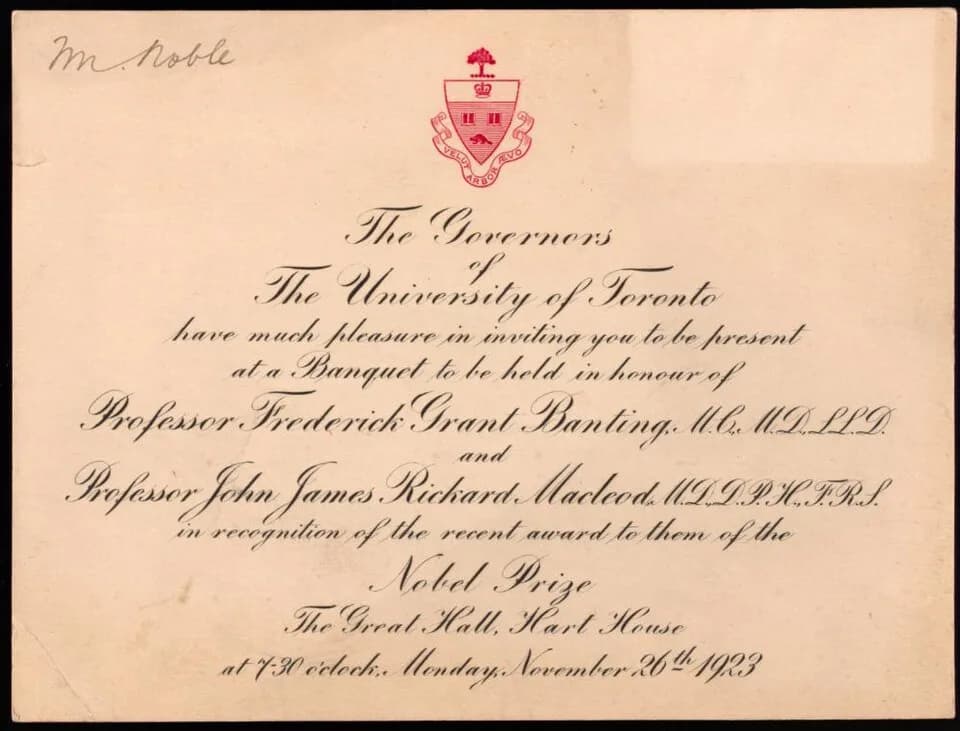 Mr. Noble
VELUT ARBOR ÆVO
The Governors
of
The University of Toronto
have much pleasure in inviting you to be present
at a Banquet to be held in honour of
Professor Frederick Grant Banting, M.C., M.D., LL.D.
and
Professor John James Rickard Macleod, M.D., D.P.H., F.R.S.
in recognition of the recent award to them of the
Nobel Prize
The Great Hall, Hart House
at 7-30 o'clock, Monday, November 26th 1923